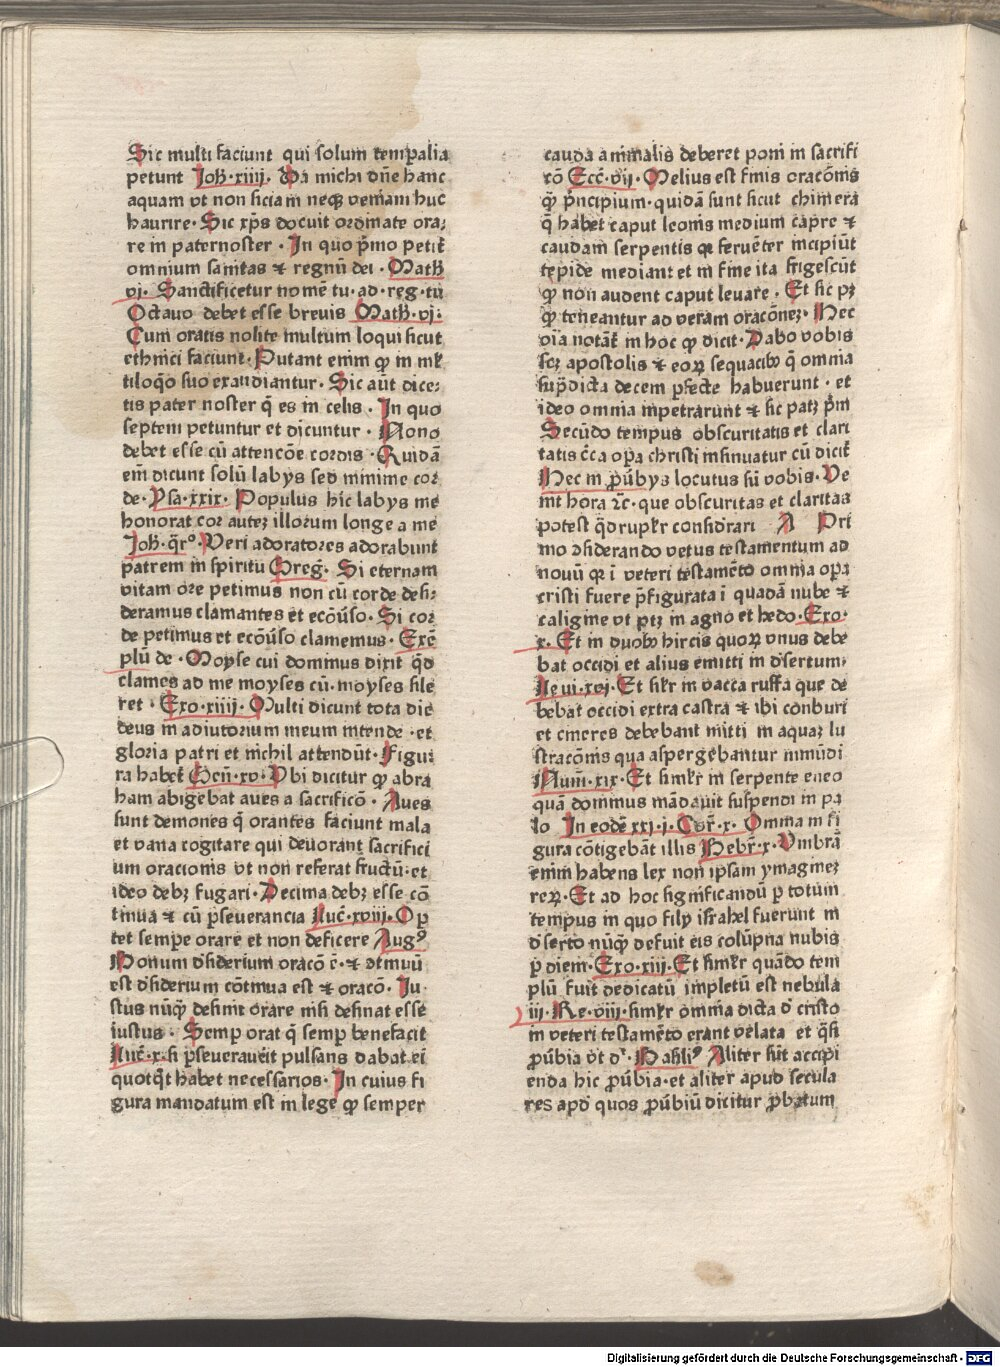 Sic multi faciunt qui solum temꝑalia
petunt Joh̄·xiiii. Da michi dn̄e hanc
aquam vt non siciam neqꝫ veniam huc
haurire· Sic xp̄s docuit ordinate ora⸗
re in paternoster · In quo p̄mo petit᷑
omnium sanitas ⁊ regnū dei · Math̄
vj. Sanctificetur nomē tu·ad·reg·tū
Octauo debet esse breuis Math̄·vj·
Cum oratis nolite multum loqui sicut
ethnici faciunt· Putant enim ꝙ in ml̄
tiloq̊o suo exaudiantur· Sic aut̄ dice⸗
tis pater noster q̄ es in celis · In quo
septem petuntur et dn̄cuntur · Nono
debet esse cū attencōe cordis · Quidā
em̄ dicunt solū labijs sed minime cor
de· Ysa·xxix· Populus hic labijs me
honorat cor auteꝫ illorum longe a me
Joh̄·q̄r°·Veri adoratores adorabunt
patrem in spiritu Greḡ· Si eternam
vitam ore petimus non cū corde desi⸗
deramus clamantes et ecōūso· Si cor
de petimus et ecōūso clamemus· Exē
plū de · Moyse cui dominus dixit q̄d
clames ad me moyses cū· moyses sile
ret · Exo·xiiii· Multi dicunt tota die
deus in adiutorium meum intende ·et
gloria patri et nichil attendūt· Figu⸗
ra habet᷑ Gen̄·xv·Vbi dicitur ꝙ abra
ham abigebat aues a sacrificō· Aues
sunt demones q̄ orantes faciunt mala
et vana cogitare qui deuorant sacrifici
um oracionis vt non referat fructū·et
ideo debꝫ fugari· Decima debꝫ esse cō
tinua ⁊ cū ꝑseuerancia Luc̄·xviii·Oꝑ
tet semꝑe orare et non deficere Augꝰ
Bonum dꝰsiderium oracō ē·⁊ ↄtinuū
est dꝰsiderium cōtinua est ⁊ oracō· Iu·
stus nūqꝫ desinit orare nisi desinat esse
iustus · Semꝑ orat q̄ semꝑ benefacit
Luc̄·x·si ꝑseuerauerit pulsans dabat·ei
quotq̊t habet necessarios· In cuius fi
gura mandatum est in lege ꝙ semper
cauda animalis deberet poni in sacrifi
cō Ecc̄·vij· Melius est finis oracōnis
ꝙ p̄ncipium· quidā sunt sicut chimera
q̄ habet caput leonis medium capre ⁊
caudam serpentis qꝛ feruēter incipiūt
tepide mediant et in fine ita frigescūt
ꝙ non audent caput leuare · Et sic pꝫ
ꝙ teneantur ad veram oracōneꝫ· Hec
oīa notat᷑ in hoc ꝙ dicit· Dabo vobis
scꝫ apostolis ⁊ eoꝝ sequacibꝰ q̄ omnia
sup̄dicta decem ꝑfecte habuerunt · et
ideo omnia impetrarunt ⁊ sic patꝫ p̄m
Secūdo tempus obscuritatis et clari
tatis c̄ca oꝑa christi insinuatur cū dicit᷑
Hec in ꝓūbijs locutus sū vobis· Ve
nit hora ⁊c̄· que obscuritas et claritas
potest q̊drupl̄r considr̄ari A Pri
mo ↄsiderando vetus testamentum ad
nouū qꝛ ī veteri testamēto omnia oꝑa
cristi fuere p̄figurata ī quadā nube ⁊
caligine vt ptꝫ in agno et hedo· Exo·
x· Et in duobꝰ hircis quoꝝ vnus debe
bat occidi et alius emitti in dꝰsertum·
Leui·xvj·Et sil̄r in vacca ruffa que de
bebat occidi extra castra ⁊ ibi conburi
et cineres debebant mitti in aquaꝫ lu
stracōnis qua aspergebantur inmūdi
Num̄·xix·Et simil̄r in serpente eneo
quā dominus mādauit suspendi in pa
lo In eodē xxj·j·Cor̄·x· Omnia in fi
gura cōtigebāt illis Hebr̄·x· Vmbrā
enim habens lex non ipsam ymagineꝫ
reꝝ·Et ad hoc significandū ꝑ totum
tempus in quo filij israhel fuerunt in
dꝰserto nūqꝫ defuit eis colūpna nubis
ꝑ diem·Exo·xiii·Et simil̄r quādo tem
plū fuit dedicatū impletū est nebula
iii·Re·viii·simil̄r omnia dicta dꝰ cristo
in veteri testamēto erant velata et q̄si
ꝓūbia vt dꝛ· Basiliꝰ Aliter sūt accipi
enda hic ꝓūbia·et aliter apud secula
res apd̄ quos ꝓūbiū dicitur ꝓbatum
Digitalisierung gefördert durch die Deutsche Forschungsgemeinschaft · DFG